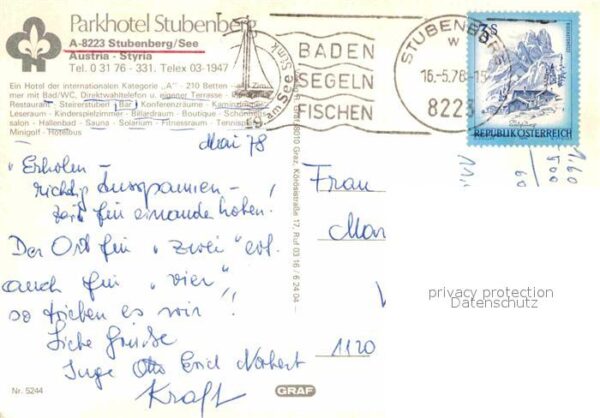 Parkhotel Stubenberg
A-8223 Stubenberg/See
Austria - Styria
Tel. 0 31 76 - 331. Telex 03-1947
Ein Hotel der internationalen Kategorie „A" - 210 Betten -
mer mit Bad/WC, Direktwahltelefon u. eigener Terrasse -
Restaurant, Steirerstüberl Bar Konferenzräume Kaminzimmer
Leseraum - Kinderspielzimmer - Billardraum - Boutique - Schönheits-
salon - Hallenbad - Sauna - Solarium - Fitnessraum - Tennisplätze
Minigolf - Hotelbus
am See Stmk
BADEN
SEGELN
FISCHEN
STUBENBERG
16.-5.78-15
8223
REPUBLIK ÖSTERREICH
1.60
500
60
Mai 78
"Erholen -
richtig Ausspannen -
Zeit für einander haben.
Der Ort für „zwei" evl.
auch für „vier"
so trieben es wir!!
Liebe Grüße
Inge Otto Erich Norbert
Kraft
Frau
Mar
1120
8010 Graz, Körösistraße 17, Ruf 03 16 / 6 24 04
privacy protection
Datenschutz
Nr. 5244
GRAF